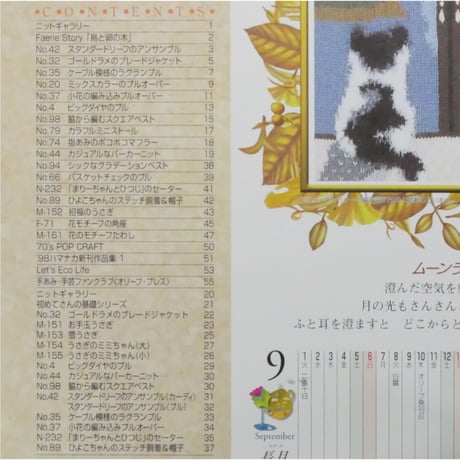 C・O・N・T・E・N・T・S
ニットギャラリー 1
Faerie Story「鳥と卵の木」 2
No.42 スタンダードリーフのアンサンブル 3
No.32 ゴールドラメのブレードジャケット 5
No.35 ケーブル模様のラグランプル 7
No.20 ミックスカラーのプルオーバー 9
No.37 小花の編み込みプルオーバー 11
No.4 ビッグダイヤのプル 13
No.98 脇から編むスクエアベスト 15
No.79 カラフルミニストール 17
No.74 指あみのポコポコマフラー 18
No.44 カジュアルなパーカーニット 19
No.94 シックなグラデーションベスト 38
No.66 バスケットチェックのプル 39
N-232 「まりーちゃんとひつじ」のセーター 41
No.89 ひよこちゃんのステッチ胴着&帽子 42
M-152 招福のうさぎ 43
F-71 花モチーフの角座 45
M-161 花のモチーフたわし 47
70's POP CRAFT 50
'98ハマナカ新刊作品集 1 51
Let's Eco Life 53
手あみ・手芸ファンクラブ(オリーブ・プレス) 55
ニットギャラリー 20
初めてさんの基礎シリーズ 21
No.32 ゴールドラメのブレードジャケット 22
M-151 お手玉うさぎ 23
M-153 雪うさぎ 25
M-154 うさぎのミミちゃん(大) 27
M-155 うさぎのミミちゃん(小) 28
No.4 ビッグダイヤのプル 29
No.44 カジュアルなパーカーニット 30
No.98 脇から編むスクエアベスト 31
No.42 スタンダードリーフのアンサンブル(カーディ) 31
スタンダードリーフのアンサンブル(プル) 32
No.35 ケーブル模様のラグランプル 33
No.37 小花の編み込みプルオーバー 34
N-232 「まりーちゃんとひつじ」のセーター 35
No.89 ひよこちゃんのステッチ胴着&帽子 37
ムーンラ
澄んだ空気を
月の光もさんさん
ふと耳を澄ますと どこからと
9
September
長月
1 火 二百十日
2 水
3 木
4 金
5 土
6 日
7 月
8 火 白露
9 水
10 木 オリーブ発刊日
11 金
12 土